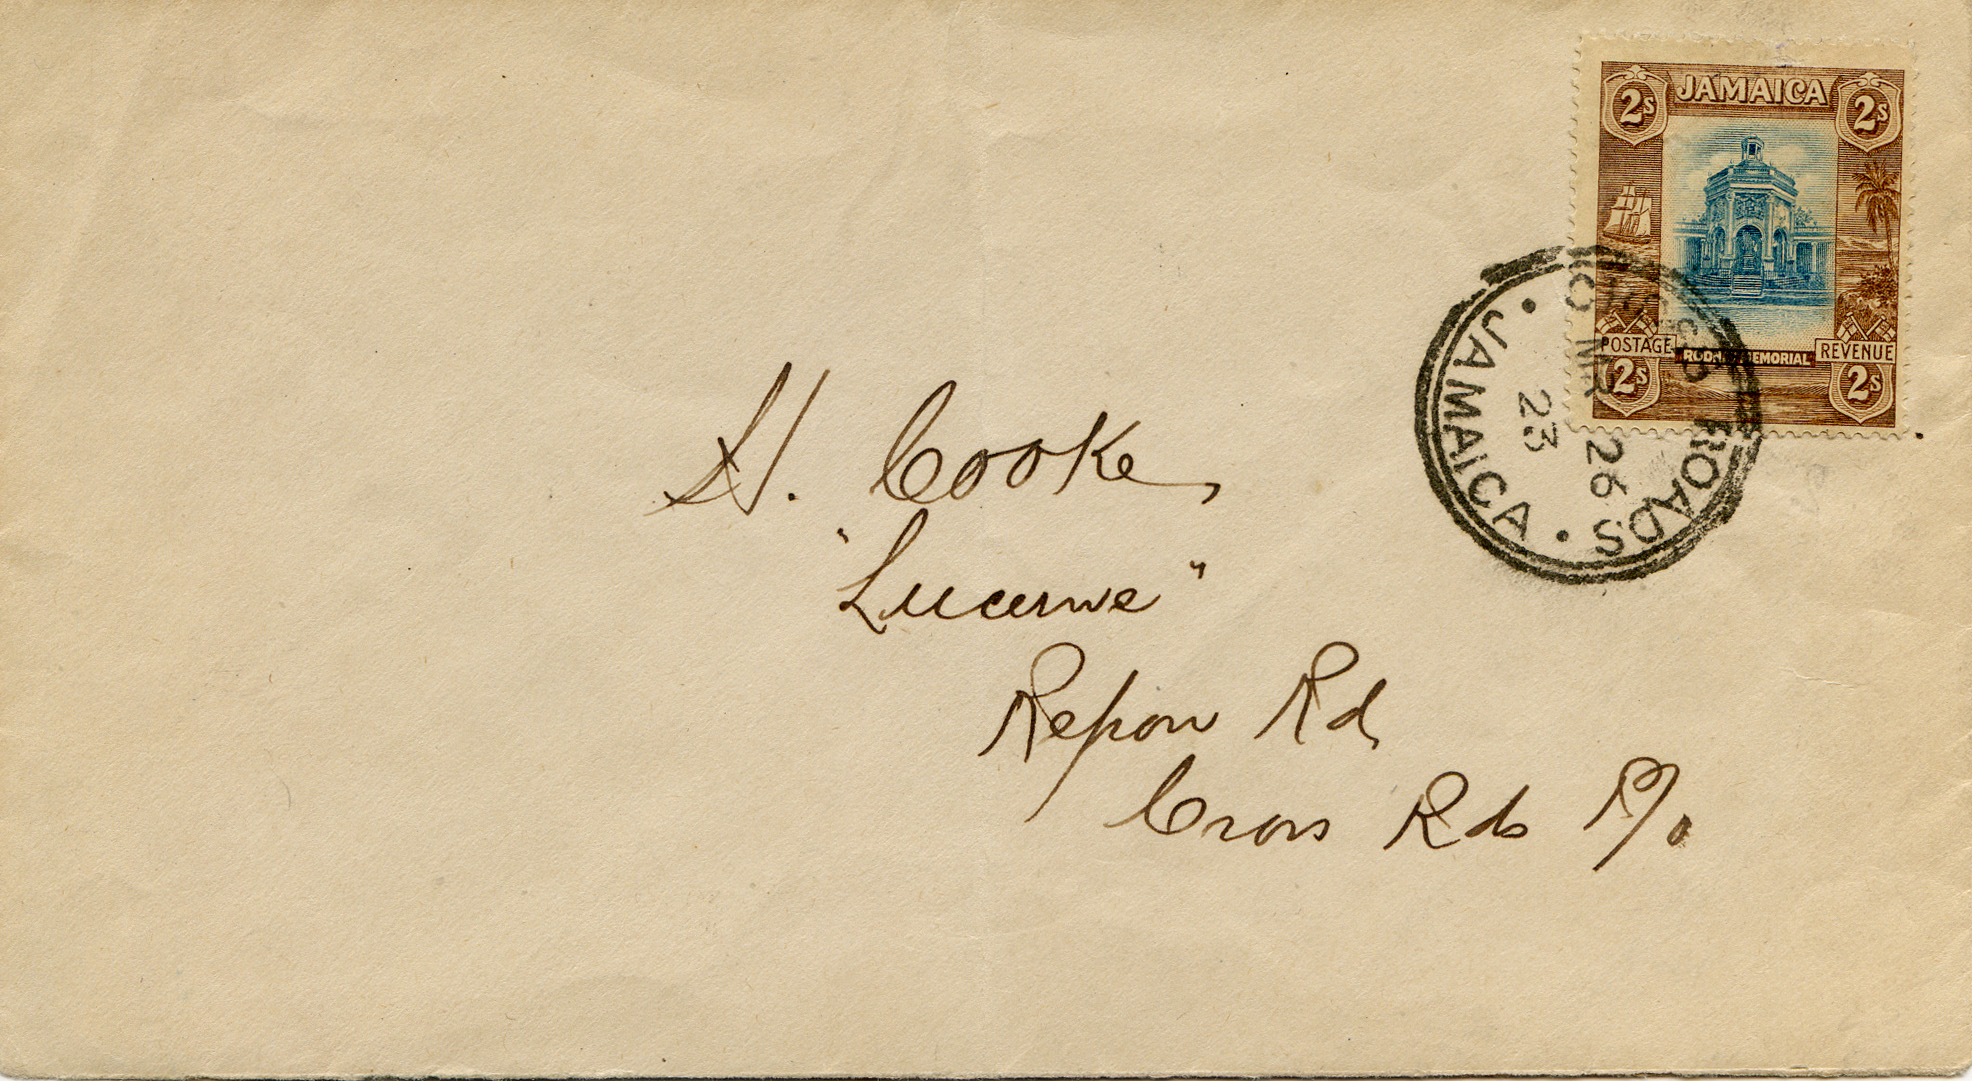 JAMAICA
2S 2S
POSTAGE RODNEY MEMORIAL REVENUE
2S 2S
CROSS ROADS
MR 26
23
JAMAICA
H. Cooke,
"Lucerne"
Repon Rd,
Cross Rds P/o